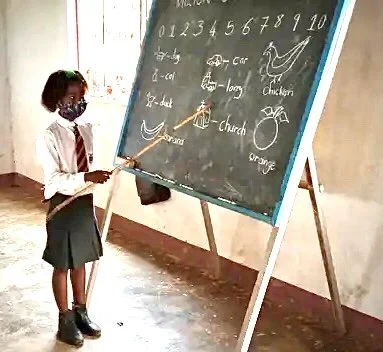 0 1 2 3 4 5 6 7 8 9 10
dog - car
cat - lorry Chicken
duck
banana - church orange